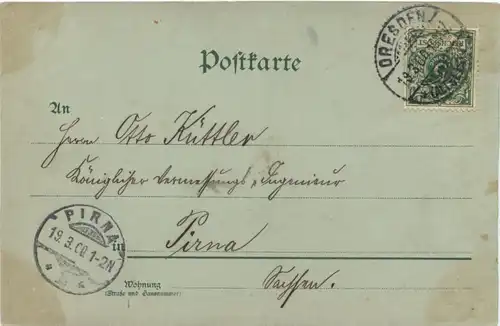 DRESDEN
19.3.00.
Postkarte
An
Herrn Otto Küttler
Königlicher Vermessungs-Ingenieur
in Pirna
Sachsen.
PIRNA
19.3.00. 1-2N
Wohnung
(Straße und Hausnummer)